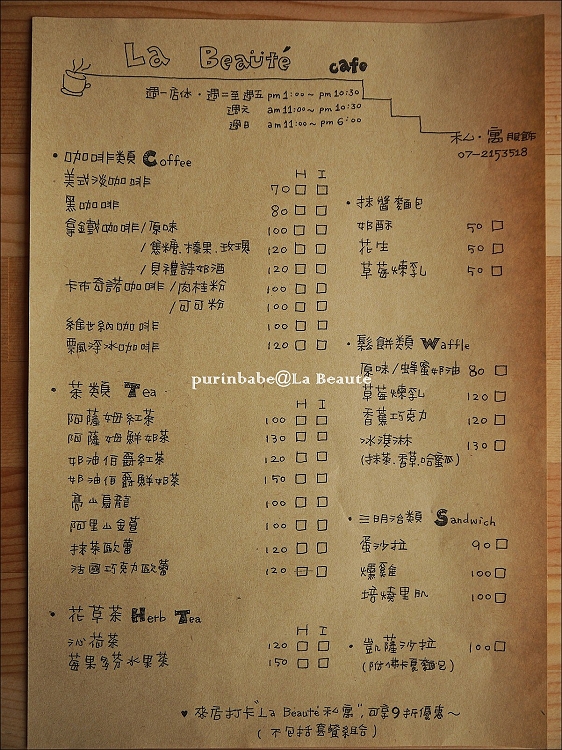 La Beauté cafe
週一店休·週二至週五 pm 1:00~ pm 10:30
週六 am 11:00~ pm 10:30
週日 am 11:00~ pm 6:00
私·寓服飾
07-2153518
• 咖啡類 Coffee
H I
美式淡咖啡 70 □ □
黑咖啡 80 □ □
拿鐵咖啡/原味 100 □ □
/焦糖.榛果.玫瑰 120 □ □
/貝禮詩奶酒 120 □ □
卡布奇諾咖啡/肉桂粉 100 □ □
/可可粉 100 □ □
維也納咖啡 100 □ □
飄浮冰咖啡 120 □ □
• 茶類 Tea
H I
阿薩姆紅茶 100 □ □
阿薩姆鮮奶茶 130 □ □
奶油伯爵紅茶 120 □ □
奶油伯爵鮮奶茶 150 □ □
高山烏龍 100 □ □
阿里山金萱 100 □ □
抹茶歐蕾 120 □ □
法國巧克力歐蕾 120 □ □
• 花草茶 Herb Tea
H I
沁荷茶 120 □ □
莓果多芬水果茶 150 □ □
• 抹醬麵包
奶酥 50 □
花生 50 □
草莓煉乳 50 □
• 鬆餅類 Waffle
原味/蜂蜜奶油 80 □
草莓煉乳 120 □
香蕉巧克力 120 □
冰淇淋 130 □
(抹茶.香草.哈蜜瓜)
• 三明治類 Sandwich
蛋沙拉 90 □
燻雞 100 □
培燒里肌 100 □
• 凱薩沙拉 100 □
(附佛卡夏麵包)
♥ 來店打卡"La Beauté 私寓",可享9折優惠~
(不包括套餐組合)
purinbabe@La Beauté